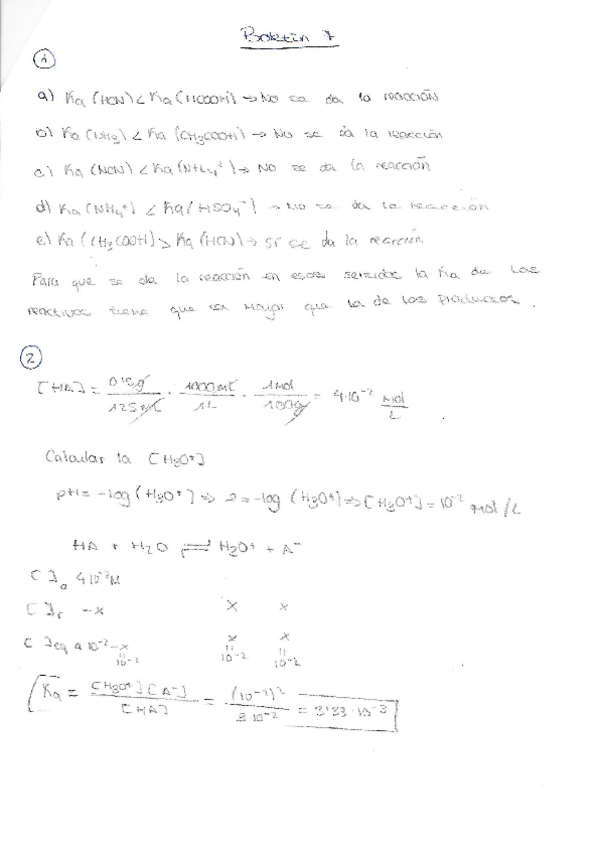 Boletín 7
1
a) Ka (HCN) < Ka (HCOOH) → No se da la reacción
b) Ka (NH3) < Ka (CH3COOH) → No se da la reacción
c) Ka (HCN) < Ka (NH4+) → No se da la reacción
d) Ka (NH4+) < Ka (HSO4-) → No se da la reacción
e) Ka (CH3COOH) > Ka (HCN) → Sí se da la reacción
Para que se da la reacción en esos sentidos la Ka de los
reactivos tiene que ser mayor que la de los productos.
2
[HA] = 0'5g / 125 ml · 1000 ml / 1L · 1 mol / 100g = 4·10^-2 mol / L
Calcular la [H3O+]
pH = -log (H3O+) => 2 = -log (H3O+) => [H3O+] = 10^-2 mol / L
HA + H2O ⇌ H3O+ + A-
[ ]o 4·10^-2 M
[ ]r -x x x
[ ]eq 4·10^-2 - x x x
10^-2 10^-2 10^-2
Ka = [H3O+][A-] / [HA] = (10^-2)^2 / 3·10^-2 = 3'33·10^-3